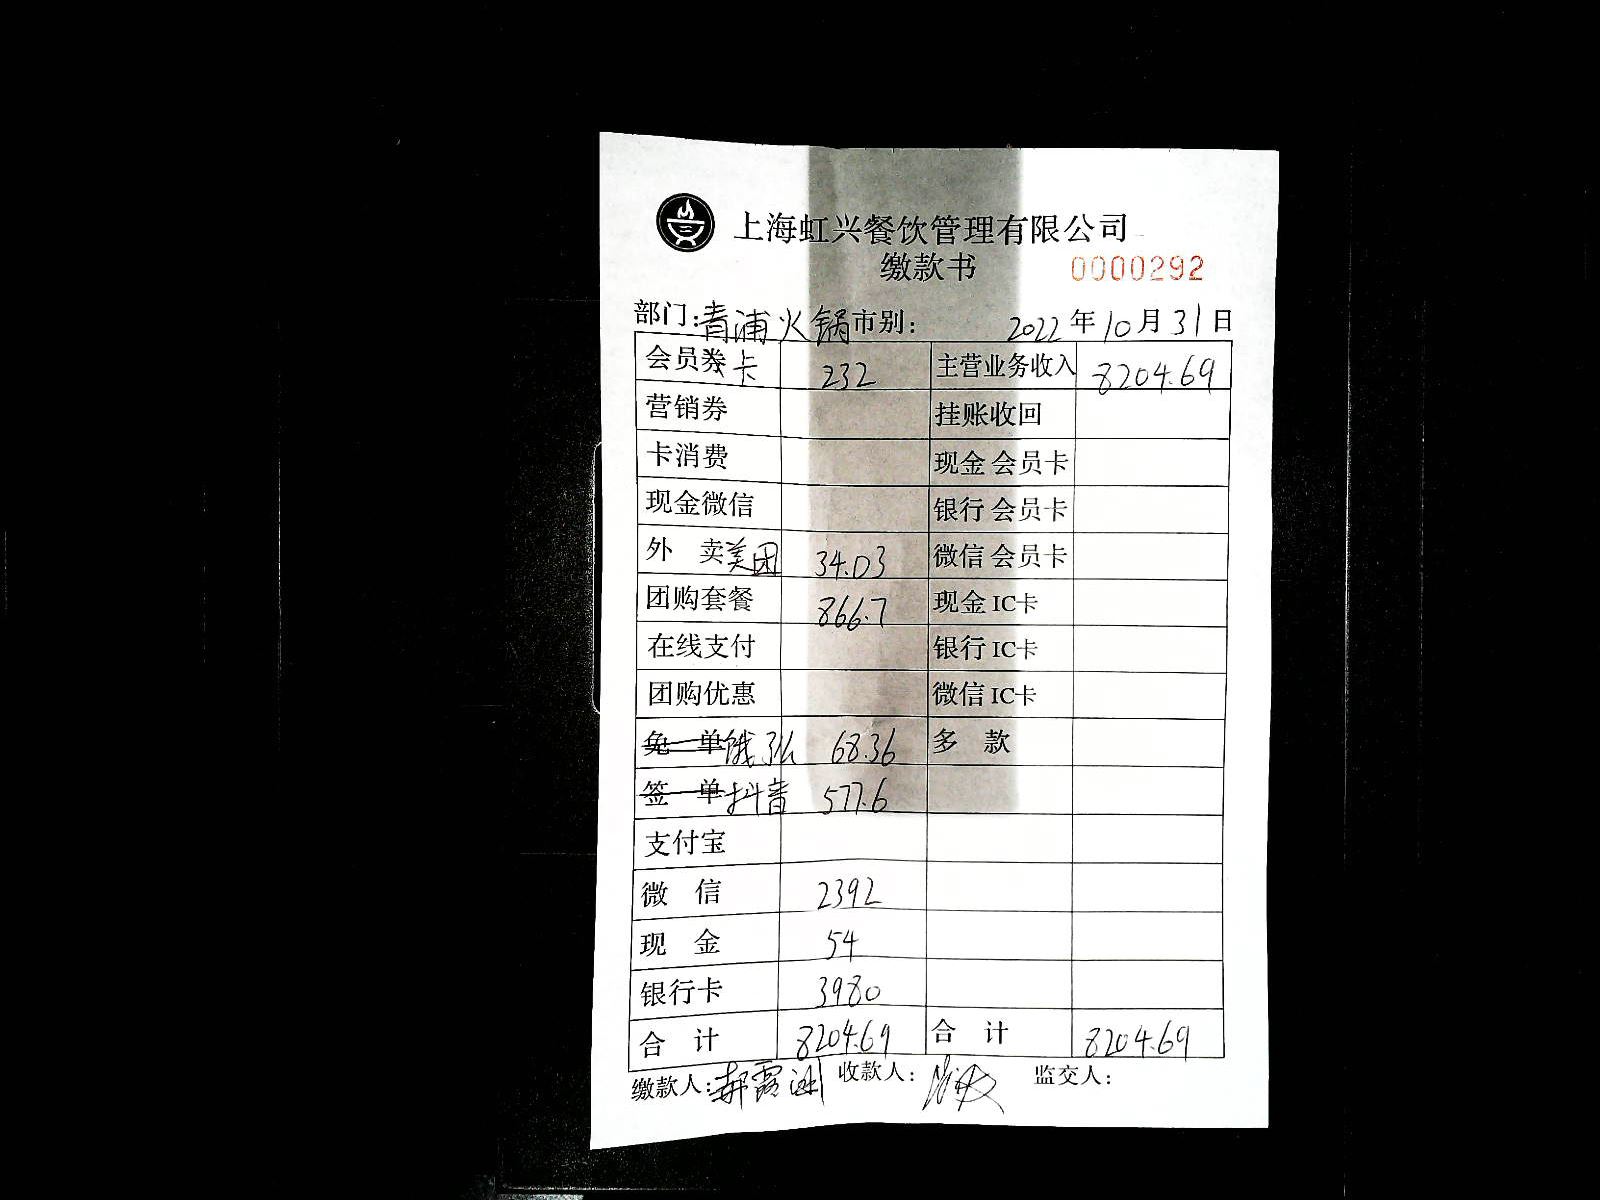 上海虹兴餐饮管理有限公司
缴款书 0000292
部门:青浦火锅 市别: 2022年10月31日
会员券卡 232 主营业务收入 8204.69
营销券 挂账收回
卡消费 现金会员卡
现金微信 银行会员卡
外卖美团 34.03 微信会员卡
团购套餐 866.7 现金IC卡
在线支付 银行IC卡
团购优惠 微信IC卡
免单饿了么 68.36 多款
签单抖音 577.6
支付宝
微信 2392
现金 54
银行卡 3980
合计 8204.69 合计 8204.69
缴款人:郝霞 收款人: 监交人: